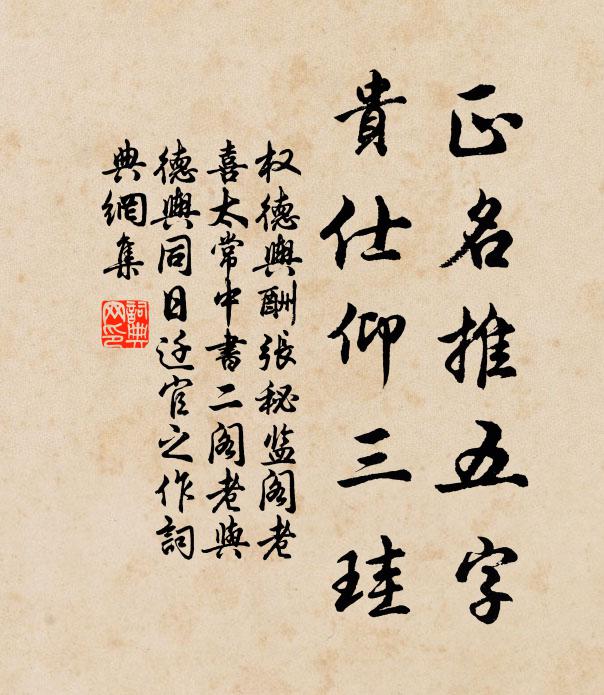 正名推五字
貴仕仰三珪
权德輿酬張秘监阁老
喜太常中書二阁老與
德輿同日迁官之作詞
典網集
詞典
网印